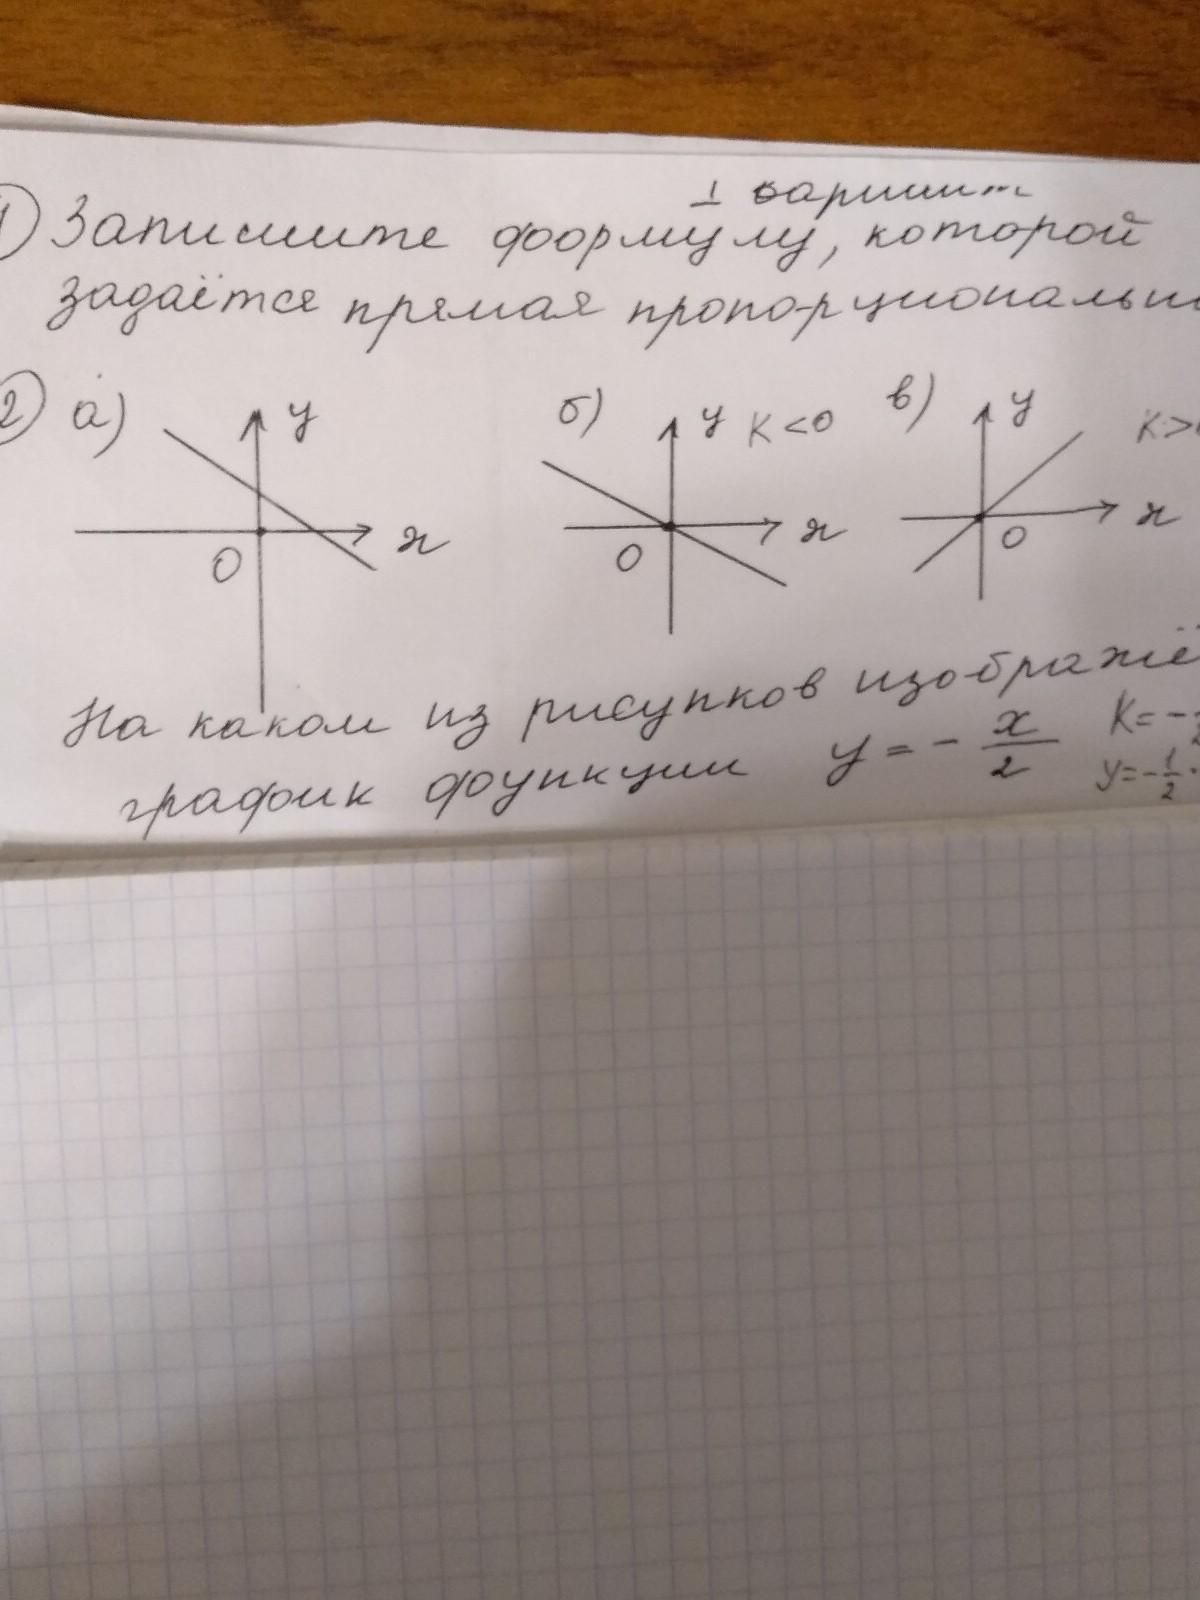 1 вариант
1 Запишите формулу, которой
задаётся прямая пропорциональн
2 а) y x 0
б) y K<0 x 0
в) y K> x 0
На каком из рисунков изображё
график функции y = - x/2
K = - 1/2
y = - 1/2 ·